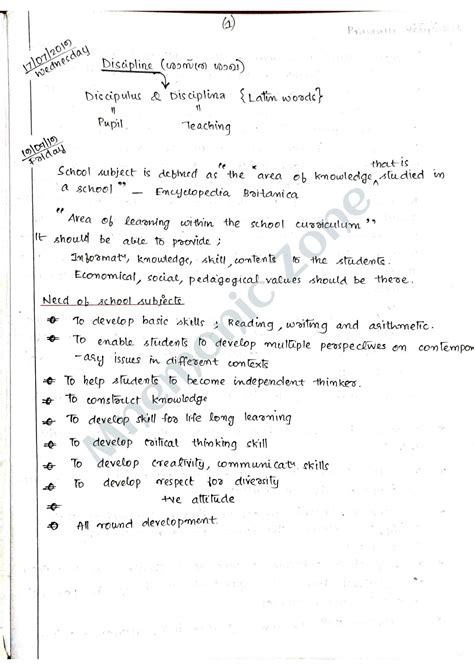 (1)
17/07/2019
Wednesday
Discipline (ശാസ്ത്ര ശാഖ)
Discipulus & Disciplina {Latin words}
= =
Pupil Teaching
Friday
School subject is defined as "the "area of knowledge that is studied in
a school" — Encyclopedia Britanica
"Area of learning within the school curriculum"
It should be able to provide ;
Informatⁿ, knowledge, skill, contents to the students.
Economical, social, pedagogical values should be there.
Need of school subjects
To develop basic skills ; Reading, writing and arithmetic.
To enable students to develop multiple perspectives on contempor
-ary issues in different contexts
To help students to become independent thinker.
To construct knowledge
To develop skill for life long learning
To develop critical thinking skill
To develop creativity, communicatⁿ skills
To develop respect for diversity
+ve attitude
All round development
Mnemonic Zone